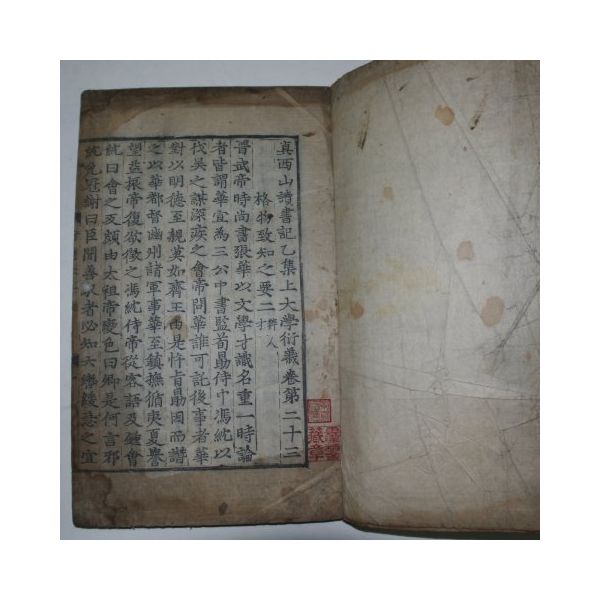 真西山讀書記乙集上大學衍義卷第二十三
格物致知之要二 辨人才
晉武帝時尚書張華以文學才識名重一時論
者皆謂華宜為三公中書監荀勗侍中馮紞以
伐吳之謀深疾之會帝問華誰可託後事者華
對以明德至親莫如齊王由是忤旨勗因而譖
之以華都督幽州諸軍事華至鎮撫循夷夏譽
望益振帝復欲徵之馮紞侍帝從容語及鍾會
紞曰會之反頗由太祖帝變色曰卿是何言邪
紞免冠謝曰臣聞善御者必知六轡緩急之宜
藏章